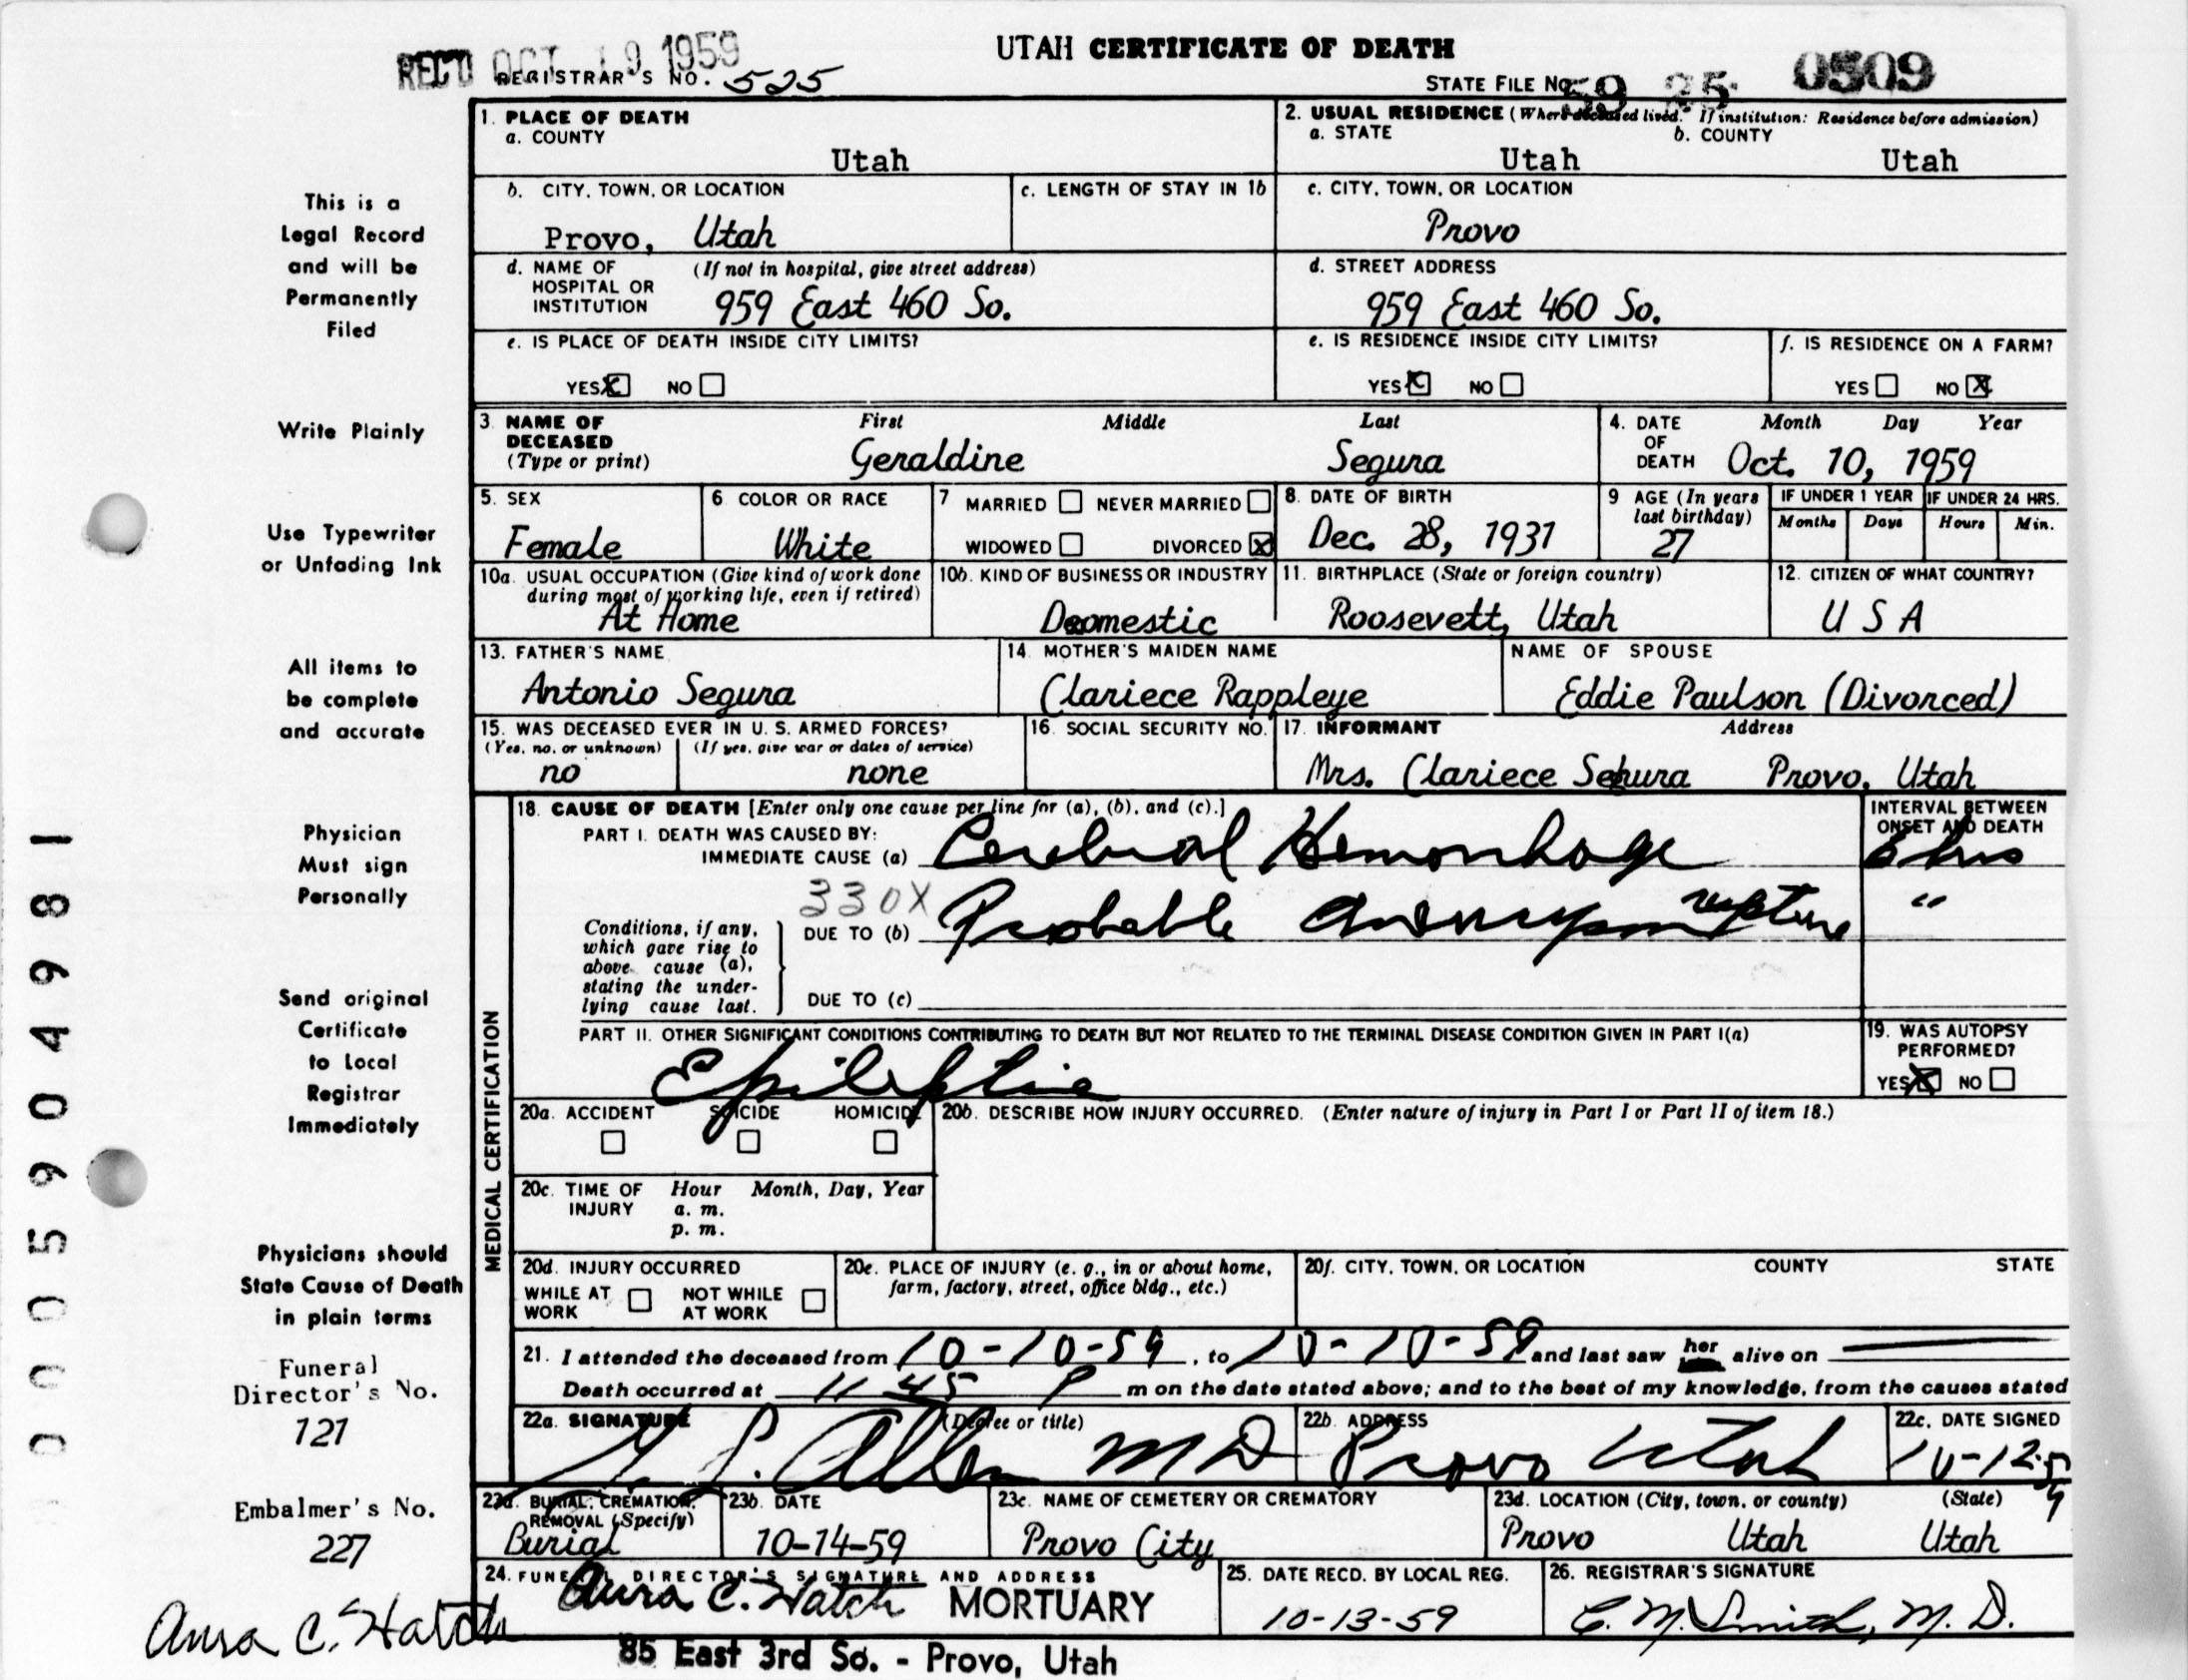 UTAH CERTIFICATE OF DEATH
REC'D OCT 19 1959
REGISTRAR'S NO. 525
STATE FILE NO. 59 25 0509
1. PLACE OF DEATH
a. COUNTY
Utah
2. USUAL RESIDENCE (Where deceased lived. If institution: Residence before admission)
a. STATE b. COUNTY
Utah Utah
b. CITY, TOWN, OR LOCATION
Provo, Utah
c. LENGTH OF STAY IN 1b
c. CITY, TOWN, OR LOCATION
Provo
d. NAME OF HOSPITAL OR INSTITUTION (If not in hospital, give street address)
959 East 460 So.
d. STREET ADDRESS
959 East 460 So.
e. IS PLACE OF DEATH INSIDE CITY LIMITS?
YES X NO
e. IS RESIDENCE INSIDE CITY LIMITS?
YES X NO
f. IS RESIDENCE ON A FARM?
YES NO X
3. NAME OF DECEASED (Type or print)
First Middle Last
Geraldine Segura
4. DATE OF DEATH Month Day Year
Oct. 10, 1959
5. SEX
Female
6. COLOR OR RACE
White
7 MARRIED NEVER MARRIED
WIDOWED DIVORCED X
8. DATE OF BIRTH
Dec. 28, 1931
9 AGE (In years last birthday)
27
IF UNDER 1 YEAR IF UNDER 24 HRS.
Months Days Hours Min.
10a. USUAL OCCUPATION (Give kind of work done during most of working life, even if retired)
At Home
10b. KIND OF BUSINESS OR INDUSTRY
Deomestic
11. BIRTHPLACE (State or foreign country)
Roosevett, Utah
12. CITIZEN OF WHAT COUNTRY?
U S A
13. FATHER'S NAME
Antonio Segura
14. MOTHER'S MAIDEN NAME
Clariece Rappleye
NAME OF SPOUSE
Eddie Paulson (Divorced)
15. WAS DECEASED EVER IN U. S. ARMED FORCES?
(Yes, no, or unknown) (If yes, give war or dates of service)
no none
16. SOCIAL SECURITY NO.
17. INFORMANT Address
Mrs. Clariece Segura Provo, Utah
MEDICAL CERTIFICATION
18. CAUSE OF DEATH [Enter only one cause per line for (a), (b), and (c).]
PART I. DEATH WAS CAUSED BY:
IMMEDIATE CAUSE (a) Cerebral Hemorrhage
INTERVAL BETWEEN ONSET AND DEATH
hrs
330X
Conditions, if any, which gave rise to above cause (a), stating the underlying cause last.
DUE TO (b) Probable Aneurysm rupture "
DUE TO (c)
PART II. OTHER SIGNIFICANT CONDITIONS CONTRIBUTING TO DEATH BUT NOT RELATED TO THE TERMINAL DISEASE CONDITION GIVEN IN PART I(a)
Epileptic
19. WAS AUTOPSY PERFORMED?
YES X NO
20a. ACCIDENT SUICIDE HOMICIDE
20b. DESCRIBE HOW INJURY OCCURRED. (Enter nature of injury in Part I or Part II of item 18.)
20c. TIME OF INJURY Hour Month, Day, Year
a. m.
p. m.
20d. INJURY OCCURRED
WHILE AT WORK NOT WHILE AT WORK
20e. PLACE OF INJURY (e. g., in or about home, farm, factory, street, office bldg., etc.)
20f. CITY, TOWN, OR LOCATION COUNTY STATE
21. I attended the deceased from 10-10-59, to 10-10-59 and last saw her alive on
Death occurred at 11 45 P m on the date stated above; and to the best of my knowledge, from the causes stated
22a. SIGNATURE (Degree or title)
Allen M D
22b. ADDRESS
Provo Utah
22c. DATE SIGNED
10-12-59
23a. BURIAL, CREMATION, REMOVAL (Specify)
Burial
23b. DATE
10-14-59
23c. NAME OF CEMETERY OR CREMATORY
Provo City
23d. LOCATION (City, town, or county) (State)
Provo Utah Utah
24. FUNERAL DIRECTOR'S SIGNATURE AND ADDRESS
Aura C. Hatch MORTUARY
85 East 3rd So. - Provo, Utah
25. DATE RECD. BY LOCAL REG.
10-13-59
26. REGISTRAR'S SIGNATURE
C. M. Smith, M. D.
This is a
Legal Record
and will be
Permanently
Filed
Write Plainly
Use Typewriter
or Unfading Ink
All items to
be complete
and accurate
Physician
Must sign
Personally
Send original
Certificate
to Local
Registrar
Immediately
Physicians should
State Cause of Death
in plain terms
Funeral
Director's No.
121
Embalmer's No.
227
Aura C. Hatch
0005904981